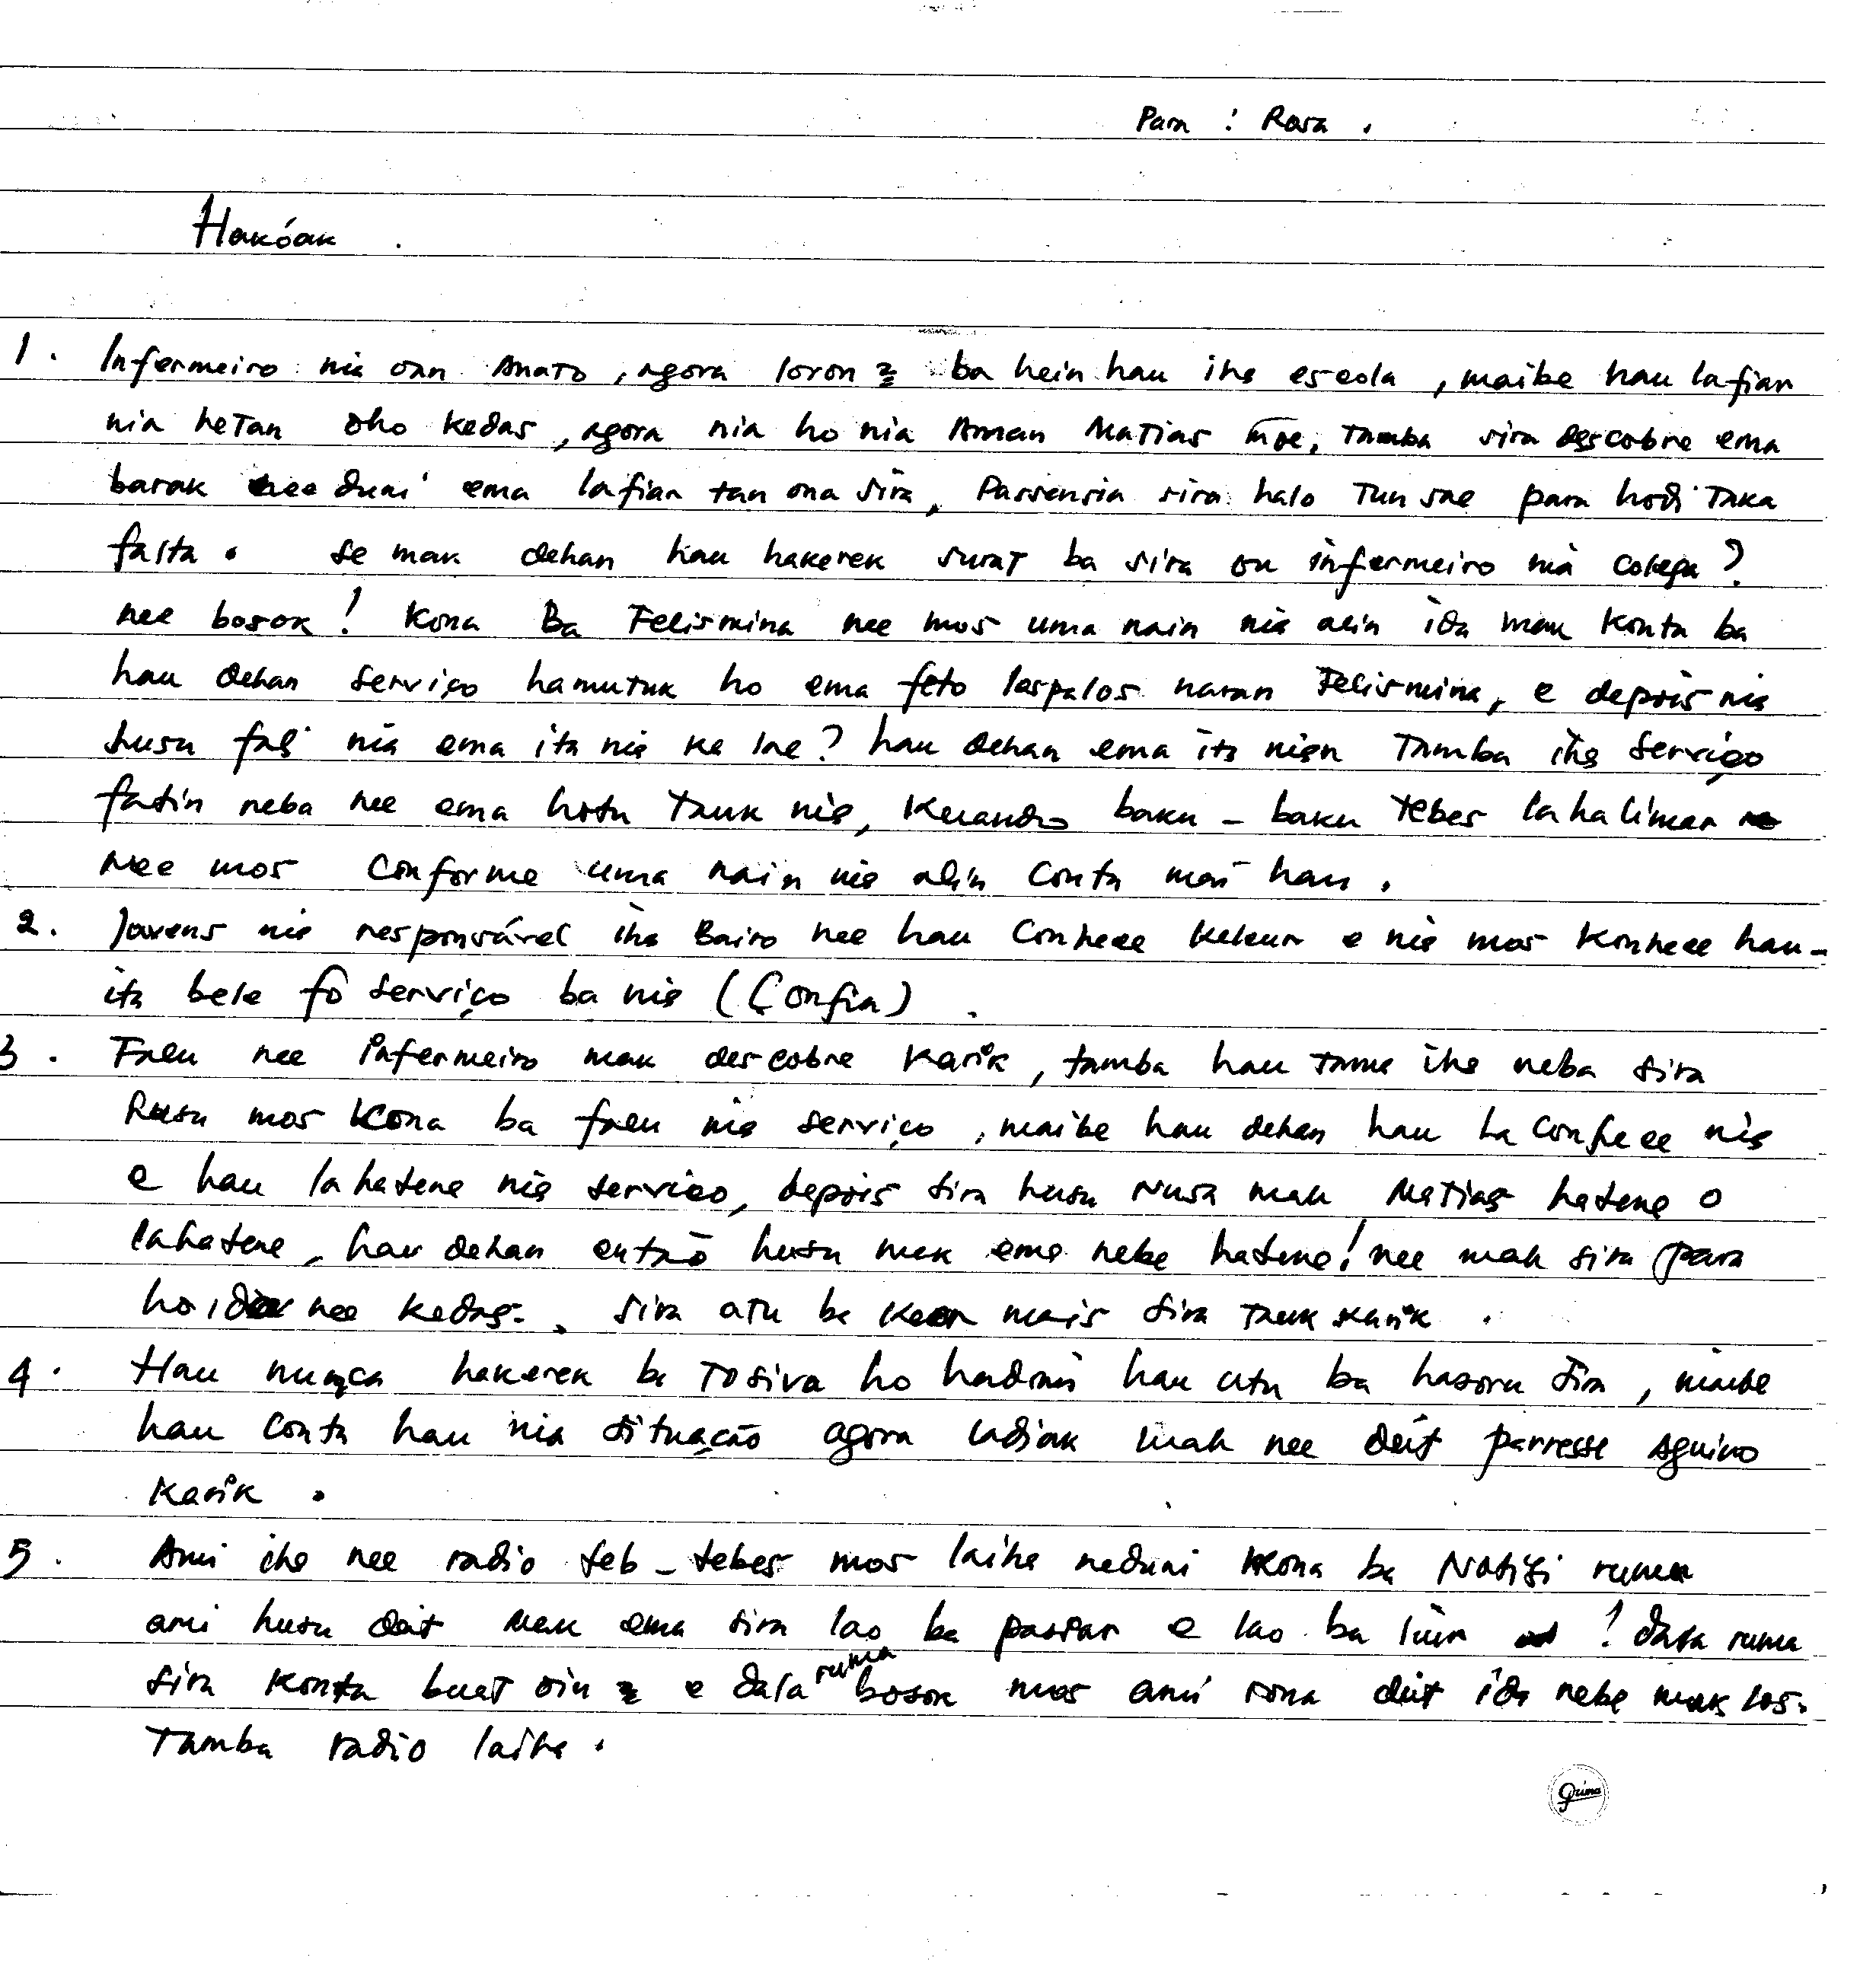 Para : Rosa .
Hakóak .
1 . Infermeiro nia oan Anato , agora loron 2 ba hein hau iha escola , maibe hau lafiar
nia hetan oho kedas , agora nia ho nia Aman Matias moe, tamba sira descobre ema
barak nee duni ema lafiar tan ona sira, Passensia sira halo tun sae para hodi taka
falta . Se mak dehan hau hakerek surat ba sira ou infermeiro nia colega ?
nee bosok ! Kona Ba Felismina nee mos uma nain nia alin ida mak konta ba
hau dehan serviço hamutuk ho ema feto laspalos naran Felismina, e depois nia
husu fali nia ema ita nia ka lae ? hau dehan ema ita nian tamba iha serviço
fatin neba nee ema hotu tauk nia, Kuando baku - baku tebes la halimar
nee mos conforme uma nain nia alin conta mai hau .
2 . Jovens nia responsável iha Bairo nee hau conhece keleur e nia mos konhece hau -
ita bele fô serviço ba nia ( Confia ) .
3 . Falu nee infermeiro mak descobre karik , tamba hau tama iha neba sira
Husu mos kona ba falu nia serviço , maibe hau dehan hau La conhece nia
e hau la hatene nia servico, depois sira husu nusa mak Matias hatene o
lahatene, hau dehan então husu mak ema nebe hatene ! nee mak sira para
ho nee kedas . sira atu ba mais sira tauk karik .
4 . Hau nunca hakerek ba to siva ho hau atu ba hasoru sira , maibe
hau conta hau nia situação agora ladiak mak nee deit parresse Aguino
Karik .
5 . Ami iha nee radio teb - tebes mos laiha neduni kona ba Notisi ruma
ami husu deit mak ema sira lao ba passar e lao ba liur ! dala ruma
sira konta buat oin 2 e dala ruma bosok mos ami rona deit ida nebe mak los.
Tamba radio laiha .
Prima